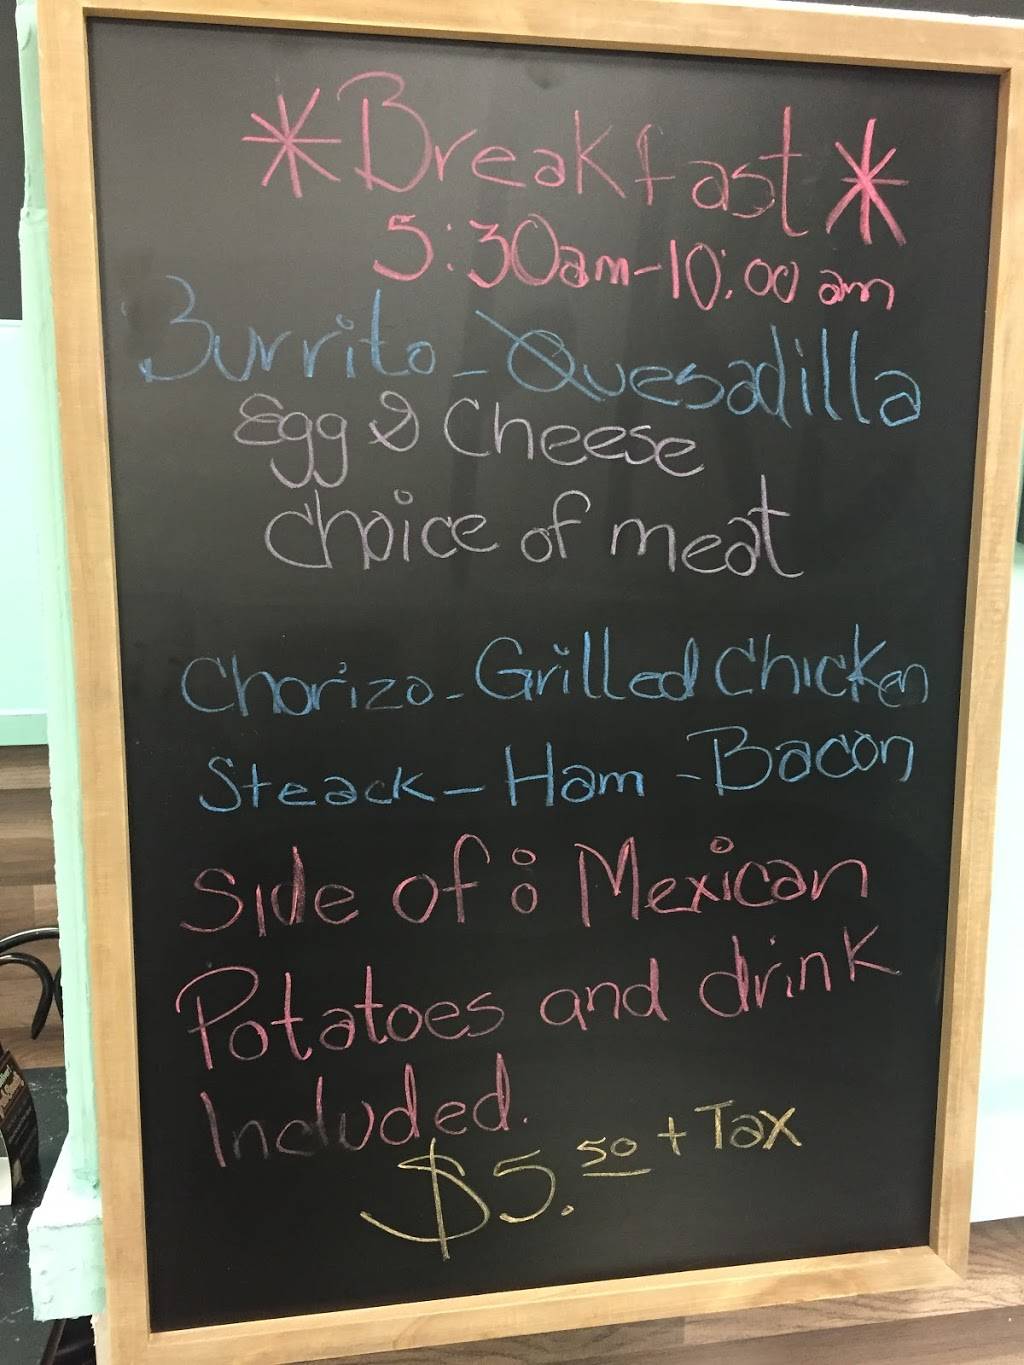 *Breakfast*
5:30am-10:00 am
Burrito - Quesadilla
Egg & Cheese
choice of meat
Chorizo - Grilled Chicken
Steack - Ham - Bacon
Side of: Mexican
Potatoes and drink
Included.
$5.50 + Tax